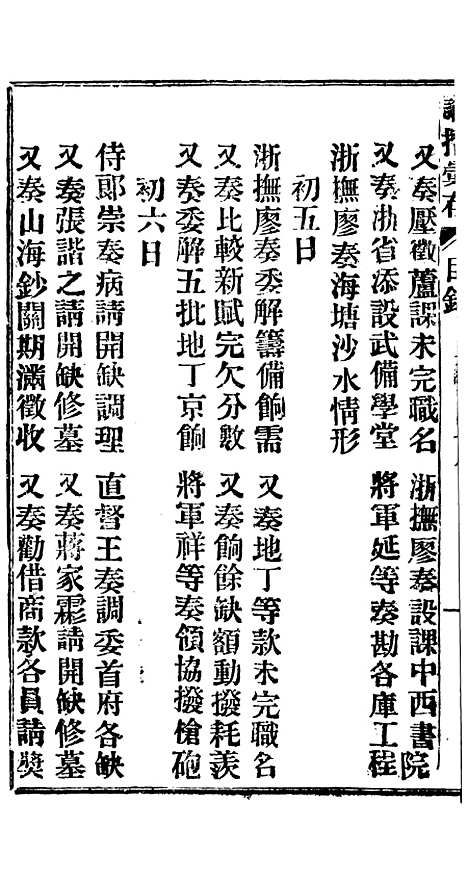 諭摺彙存 目錄
又奏壓徵蘆課未完職名 浙撫廖奏設課中西書院
又奏浙省添設武備學堂 將軍延等奏勘各庫工程
浙撫廖奏海塘沙水情形
初五日
浙撫廖奏委解籌備餉需 又奏地丁等款未完職名
又奏比較新賦完欠分數 又奏餉餘缺額動撥耗羨
又奏委解五批地丁京餉 將軍祥等奏領協撥槍砲
初六日
侍郎崇奏病請開缺調理 直督王奏調委首府各缺
又奏張諧之請開缺修墓 又奏蔣家霖請開缺修墓
又奏山海鈔關期滿徵收 又奏勸借商款各員請獎